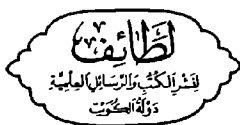 لطائف
لِنَشْرِ الْكُتُبِ وَالرَّسَائِلِ الْعِلْمِيَّةِ
دَوْلَةُ الْكُوَيْتِ